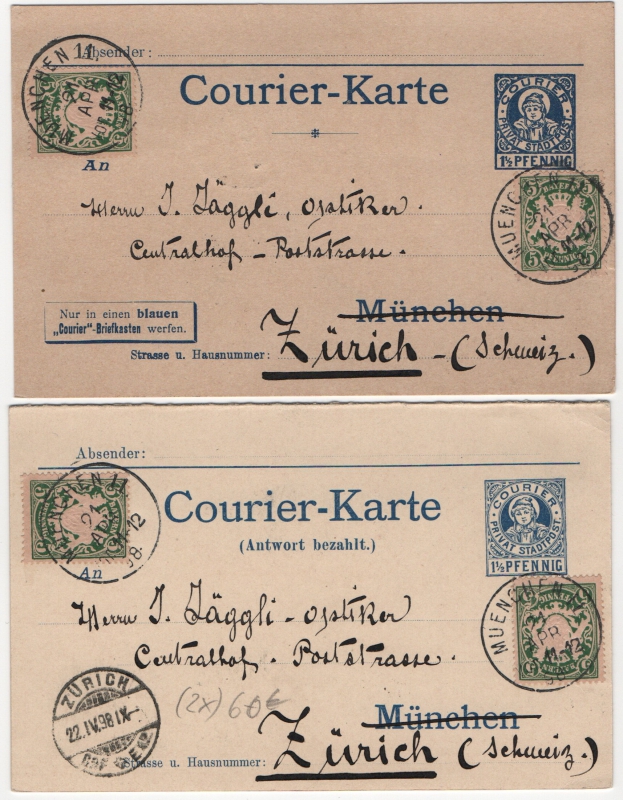 Absender:
MUENCHEN 11.
21
APR
Courier-Karte
COURIER
PRIVAT STADTPOST.
1½ PFENNIG
An
MUENCHEN
21
APR
5
BAYERN
5
PFENNIG
Herrn J. Jäggli, Optiker.
Centralhof - Poststrasse.
Nur in einen blauen
„Courier"-Briefkasten werfen.
München
Zürich - (Schweiz.)
Strasse u. Hausnummer:
Absender:
MUENCHEN 11
21
APR
98
Courier-Karte
(Antwort bezahlt.)
COURIER
PRIVAT STADTPOST.
1½ PFENNIG
An
MUENCHEN
21
Herrn J. Jäggli - Optiker
Centralhof - Poststrasse.
ZÜRICH
22.IV.98.IX-
(2x) 60€
München
Zürich (Schweiz.)
Strasse u. Hausnummer: